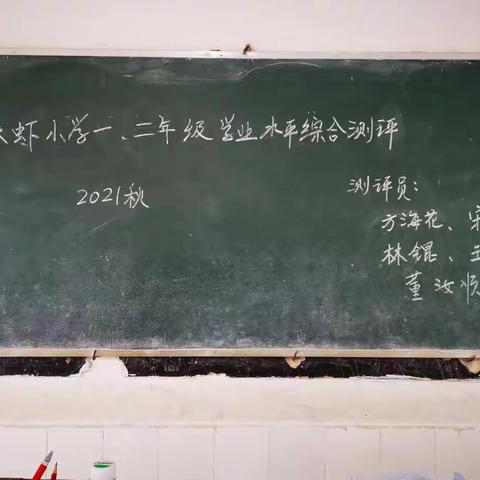 虾小学一、二年级学业水平综合测评
2021秋
测评员：
方海花、
林锟、
董汝顺